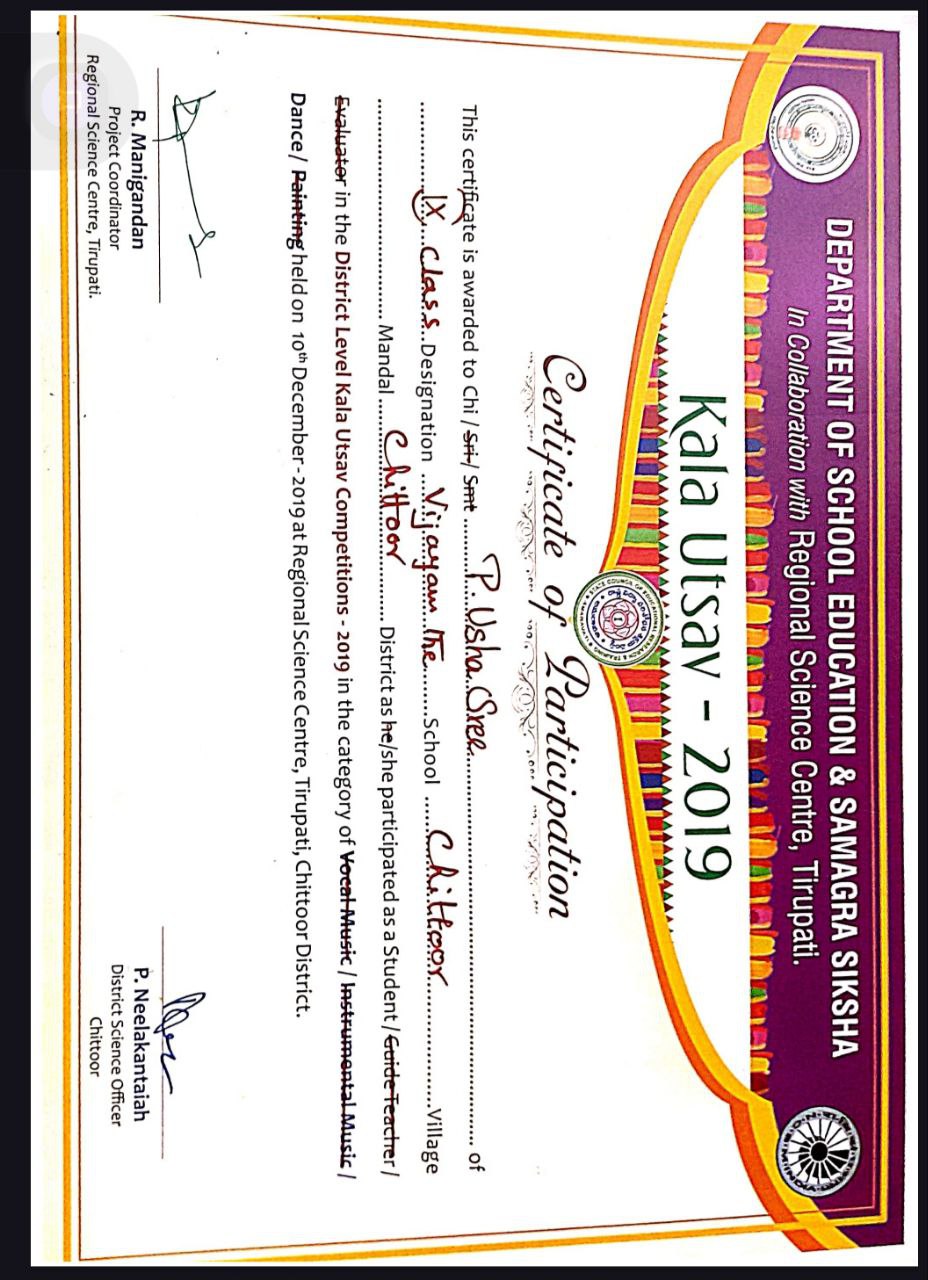 DEPARTMENT OF SCHOOL EDUCATION & SAMAGRA SIKSHA
In Collaboration with Regional Science Centre, Tirupati.
Kala Utsav - 2019
Certificate of Participation
This certificate is awarded to Chi / Sri / Smt ..........P. Usha Sree.......... of
..........IX Class..Designation ..Vijayam the........School ......Chittoor..............Village
.......................... Mandal ......Chittoor............. District as he/she participated as a Student / Guide Teacher /
Evaluator in the District Level Kala Utsav Competitions - 2019 in the category of Vocal Music / Instrumental Music /
Dance / Painting held on 10th December-2019 at Regional Science Centre, Tirupati, Chittoor District.
R. Manigandan
Project Coordinator
Regional Science Centre, Tirupati.
P. Neelakantaiah
District Science Officer
Chittoor